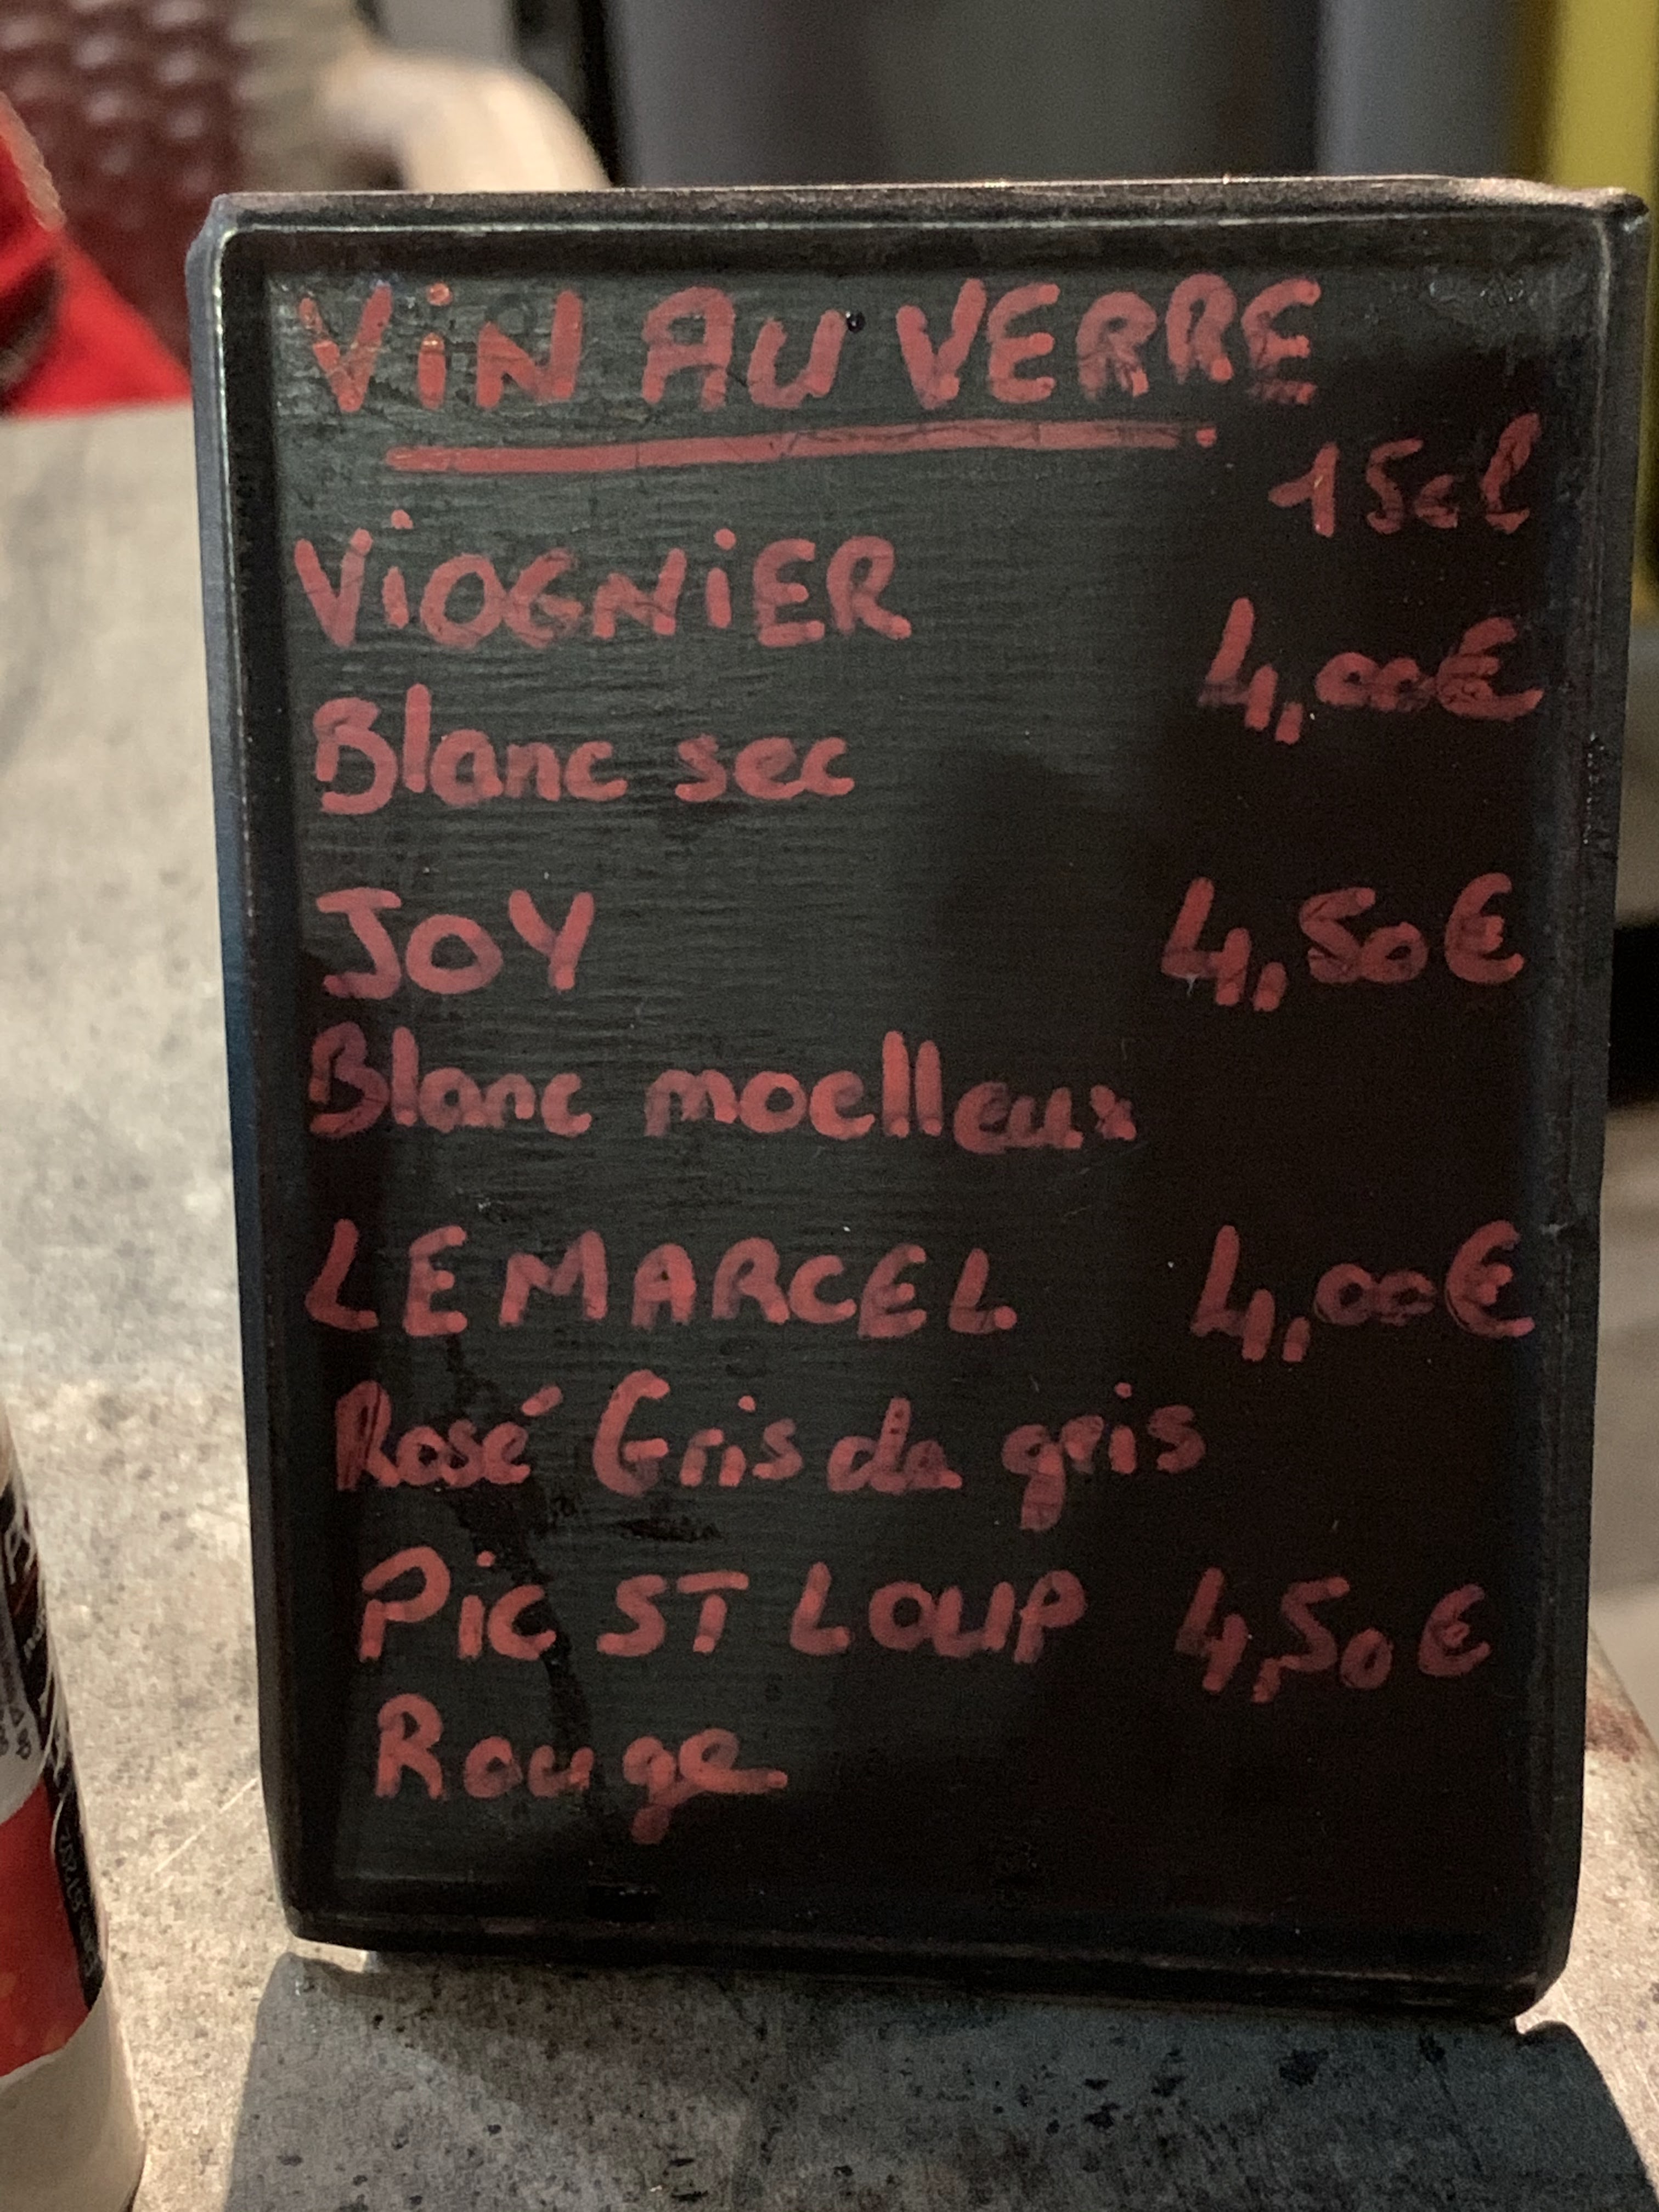 ViN AU VERRE
15cl
ViOGNiER 4,00€
Blanc sec
JOY 4,50€
Blanc moelleux
LE MARCEL 4,00€
Rosé Gris de gris
PiC ST LOUP 4,50€
Rouge